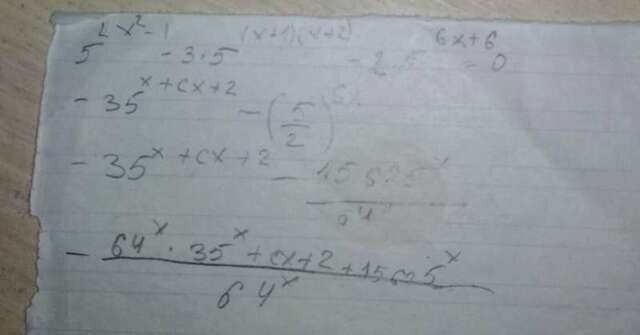 5^{2x^2-1} - 3·5^{(x+1)(x+2)} - 2·5^{6x+6} = 0
- 35^{x+cx+2} - (5/2)^{6x}
- 35^{x+cx+2} - 15625^x / 64^x
- 64^x · 35^x + cx + 2 + 15625^x / 64^x